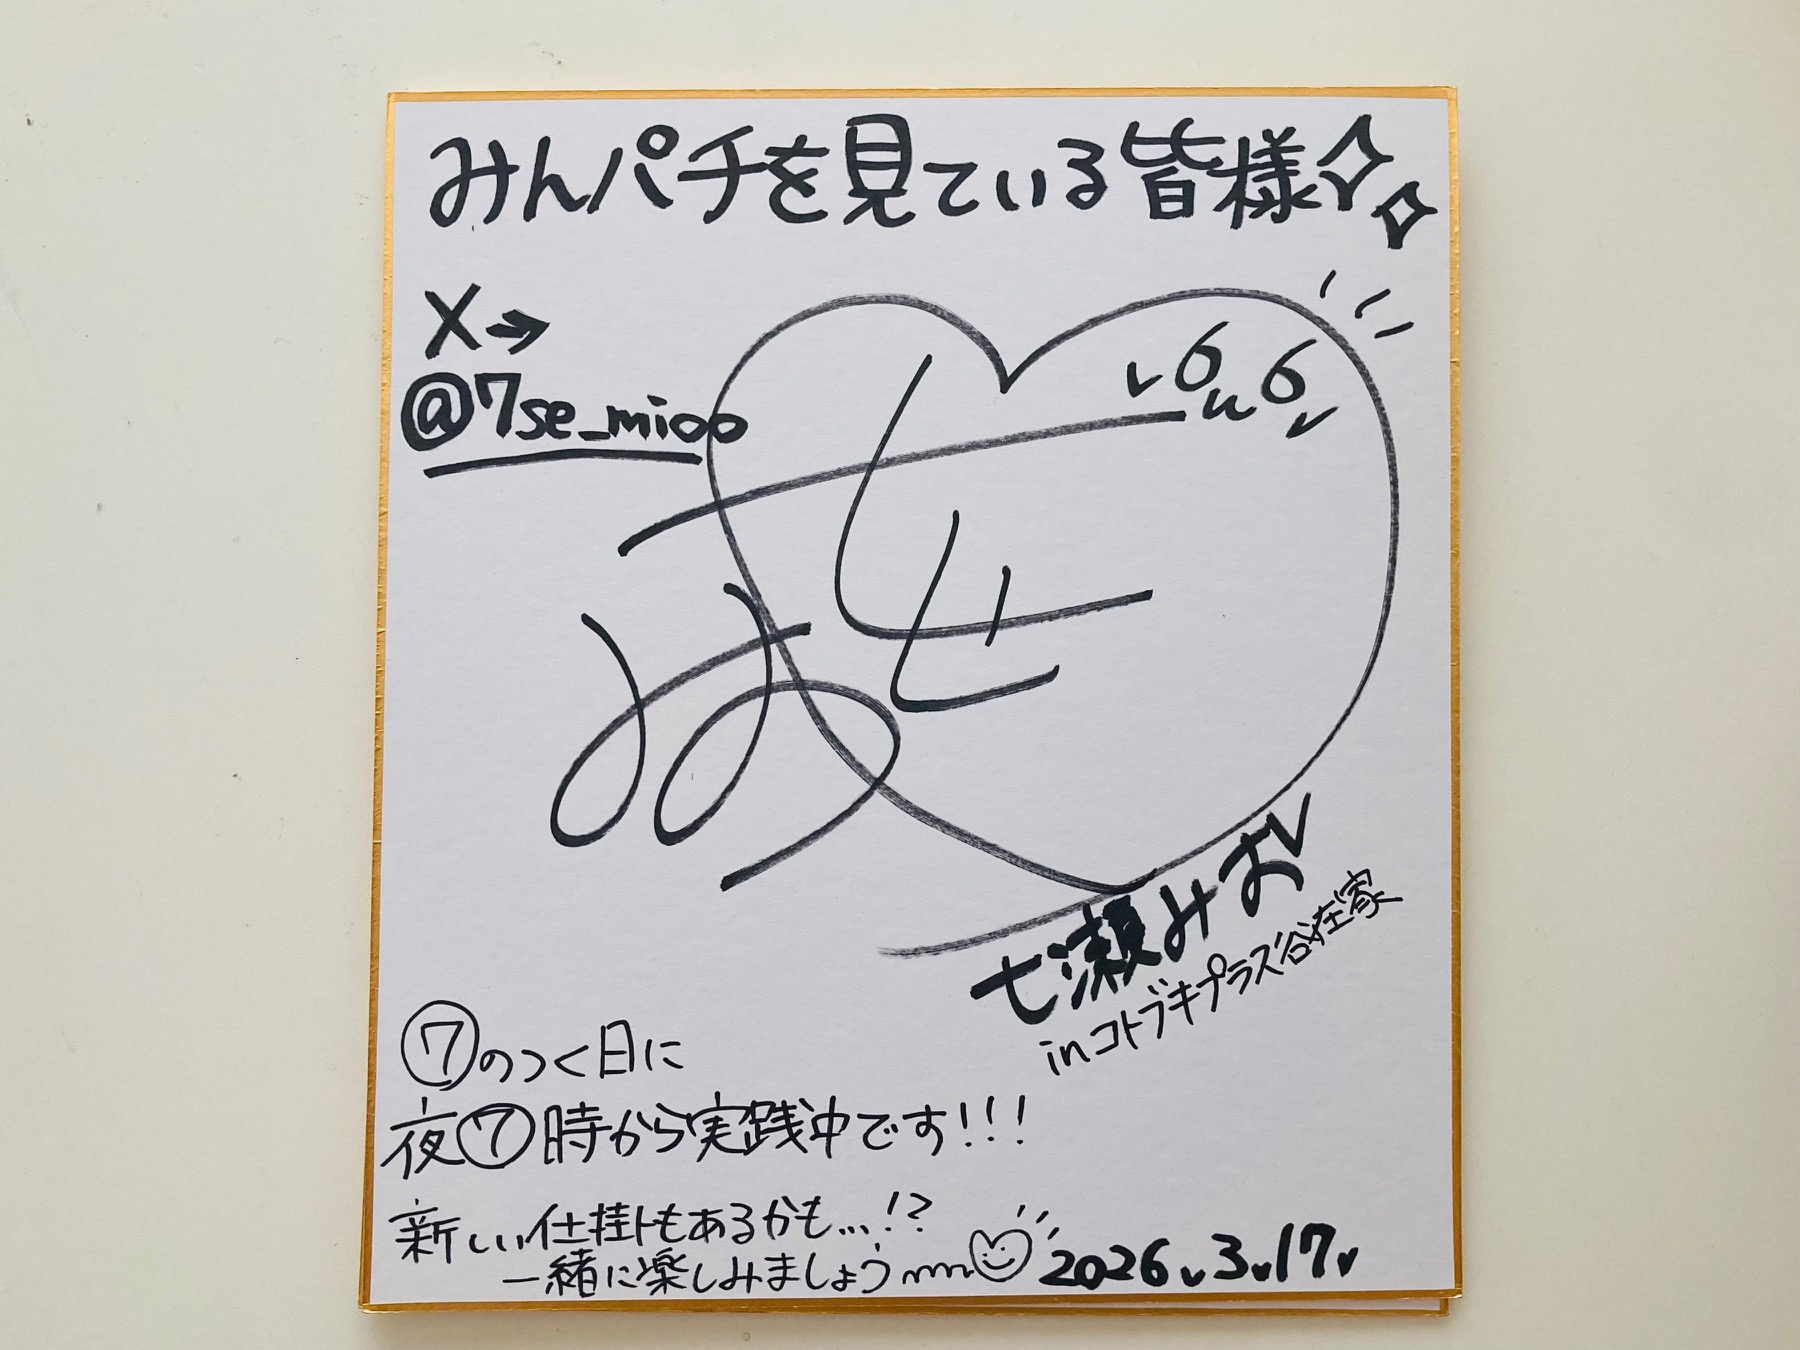 みんパチを見ている皆様
X→
@7se_mioo
七瀬みお
inコトブキプラス谷在家
⑦のつく日に
夜⑦時から実践中です!!!
新しい仕掛けもあるかも...!?
一緒に楽しみましょう
2026.3.17.